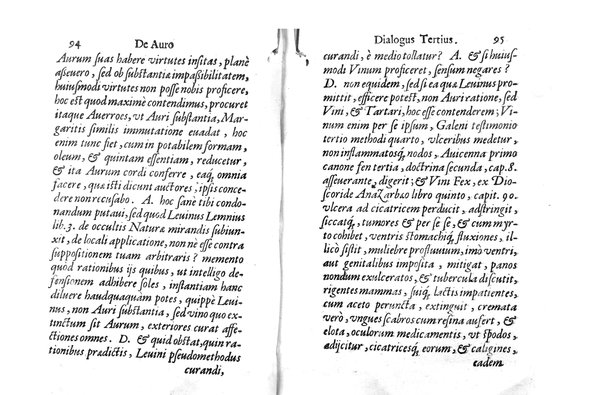 94 De Auro
Aurum suas habere virtutes insitas, planè
assevero, sed ob substantiæ impassibilitatem,
huiusmodi virtutes non posse nobis proficere,
hoc est quod maximè contendimus, procuret
itaque Averroes, vt Auri substantia, Mar-
garitis similis immutatione euadat, hoc
enim tunc fiet, cum in potabilem formam,
oleum, & quintam essentiam, reducetur,
& ita Aurum cordi conferre, eaq́, omnia
facere, quæ isti dicunt auctores, ipsis conce-
dere non recusabo. A. hoc sanè tibi condo-
nandum putaui, sed quod Leuinus Lemnius
lib. 3. de occultis Naturæ mirandis subiun-
xit, de locali applicatione, non nè esse contra
suppositionem tuam arbitraris? memento
quod rationibus ijs quibus, vt intelligo de-
fensionem adhibere soles, instantiam hanc
diluere haudquaquàm potes, quippè Leui-
nus, non Auri substantia, sed vino quo ex-
tinctum sit Aurum, exteriores curat affe-
ctiones omnes. D. & quid obstat, quin ra-
tionibus prædictis, Leuini pseudomethodus
curandi,
Dialogus Tertius. 95
curandi, è medio tollatur? A. & si huius-
modi Vinum proficeret, sensum negares?
D. non equidem, sed si ea quæ Leuinus pro-
mittit, efficere potest, non Auri ratione, sed
Vini, & Tartari, hoc esse contenderem; Vi-
num enim per se ipsum, Galeni testimonio
tertio methodi quarto, vlceribus medetur,
non inflammatosq́, nodos, Auicenna primo
canone fen tertia, doctrina secunda, cap. 8.
asseuerante, digerit; & Vini Fex, ex Dio-
scoride AnaZarbæo libro quinto, capit. 90.
vlcera ad cicatricem perducit, adstringit,
siccatq́, tumores & per se se, & cum myr-
to cohibet, ventris stomachiq́, fluxiones, il-
licò sistit, muliebre profluuium, imò ventri,
aut genitalibus imposita, mitigat, panos
nondum exulceratos, & tubercula discutit,
rigentes mammas, suiq́, lactis impatientes,
cum aceto peruncta, extinguit, cremata
verò, vngues scabros cum resina aufert, &
elota, oculorum medicamentis, vt spodos,
adijcitur, cicatricesq́, eorum, & caligines,
eadem